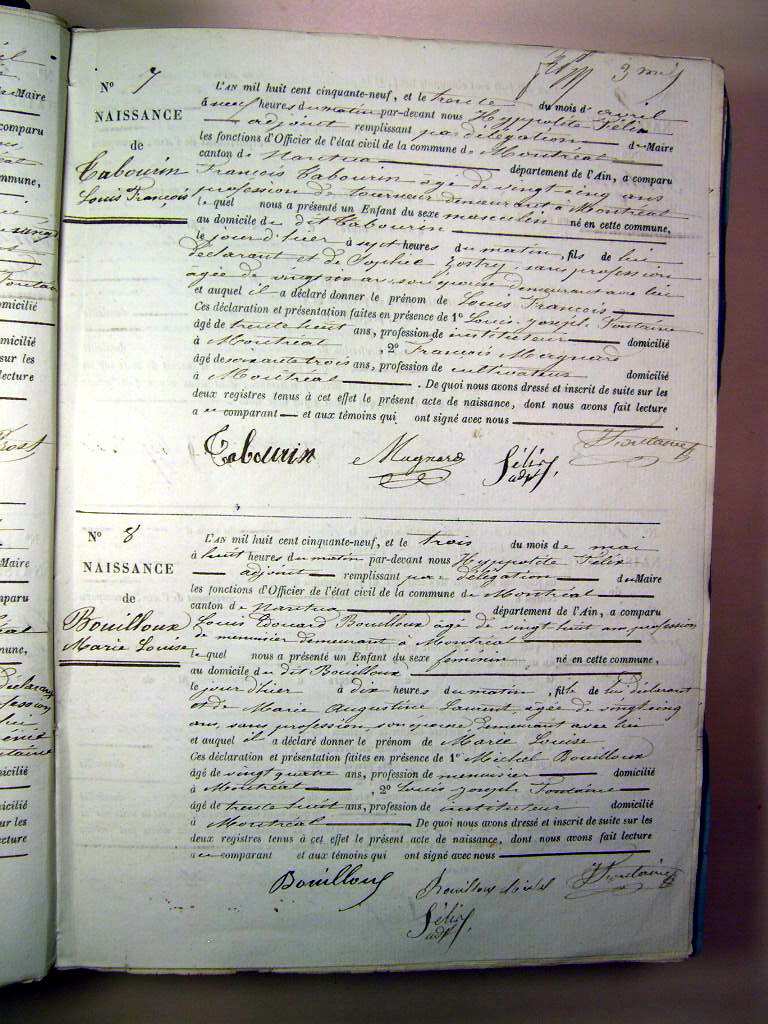 3 mai
N° 7
NAISSANCE
de
Tabourin
Louis François
L'AN mil huit cent cinquante-neuf, et le trente du mois d avril
à neuf heures du matin par-devant nous Hyppolite Félix
adjoint remplissant par délégation du Maire
les fonctions d'Officier de l'état civil de la commune de Montréal
canton de Nantua département de l'Ain, a comparu
François Tabourin âgé de vingt cinq ans
profession de tourneur demeurant à Montréal
le quel nous a présenté un Enfant du sexe masculin né en cette commune,
au domicile de dit Tabourin
le jour d'hier à sept heures du matin, fils de lui
déclarant et de Sophie sans profession
agée de vingt six ans son épouse demeurant avec lui
et auquel il a déclaré donner le prénom de Louis François
Ces déclaration et présentation faites en présence de 1° Louis Joseph Fontaine
âgé de trente huit ans, profession de instituteur domicilié
à Montréal, 2° François Mugnard
âgé de soixante trois ans, profession de cultivateur domicilié
à Montréal. De quoi nous avons dressé et inscrit de suite sur les
deux registres tenus à cet effet le présent acte de naissance, dont nous avons fait lecture
a u comparant et aux témoins qui ont signé avec nous
Tabourin Mugnard Félix adjt. Fontaine
N° 8
NAISSANCE
de
Bouilloux
Marie Louise
L'AN mil huit cent cinquante-neuf, et le trois du mois de mai
à huit heures du matin par-devant nous Hyppolite Félix
adjoint remplissant par délégation du Maire
les fonctions d'Officier de l'état civil de la commune de Montréal
canton de Nantua département de l'Ain, a comparu
Louis Édouard Bouilloux agé de vingt huit ans, profession
de menuisier demeurant à Montréal
le quel nous a présenté un Enfant du sexe féminin né en cette commune,
au domicile du dit Bouilloux
le jour d'hier à dix heures du matin, fille de lui déclarant
et de Marie Augustine Laurent agée de vingt cinq
ans, sans profession, son épouse demeurant avec lui
et auquel il a déclaré donner le prénom de Marie Louise
Ces déclaration et présentation faites en présence de 1° Michel Bouilloux
âgé de vingt quatre ans, profession de menuisier domicilié
à Montréal, 2° Louis Joseph Fontaine
âgé de trente huit ans, profession de instituteur domicilié
à Montréal. De quoi nous avons dressé et inscrit de suite sur les
deux registres tenus à cet effet le présent acte de naissance, dont nous avons fait lecture
a u comparant et aux témoins qui ont signé avec nous
Bouilloux Bouilloux Michel Fontaine
Félix
adjt.